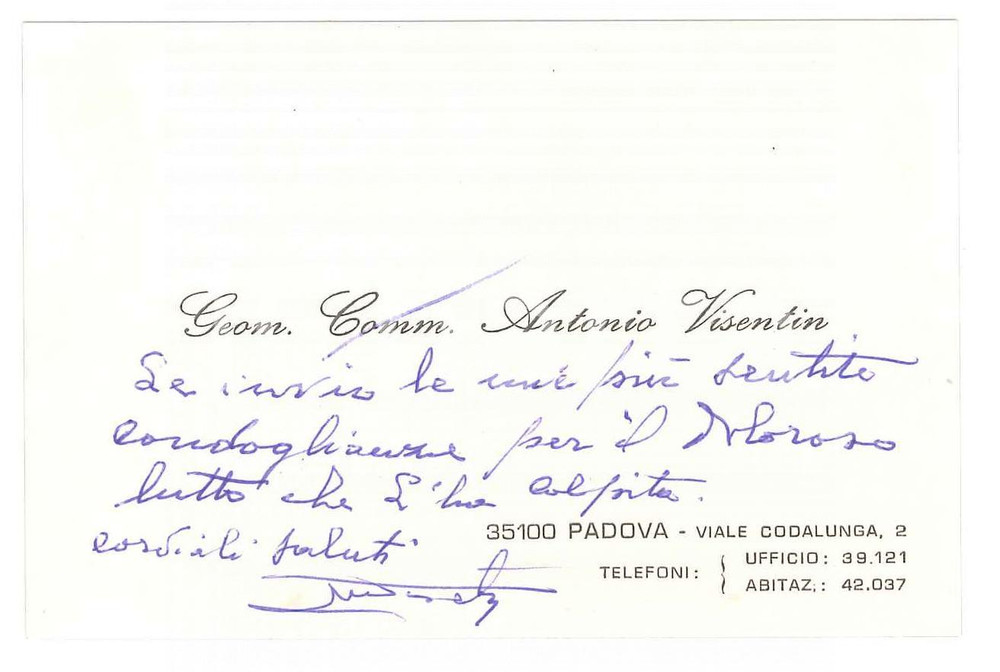 Geom. Comm. Antonio Visentin
Le invio le mie più sentite
condoglianze per il doloroso
lutto che L'ha colpita.
cordiali saluti
35100 PADOVA - VIALE CODALUNGA, 2
TELEFONI: UFFICIO: 39.121
ABITAZ.: 42.037